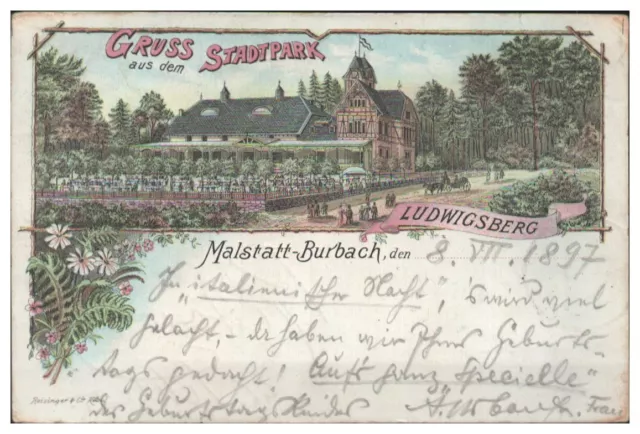 GRUSS aus dem STADTPARK
LUDWIGSBERG
Malstatt-Burbach, den 8. VII. 1897
In "italienischer Nacht", 's wird viel
gelacht, - da haben wir Ihres Geburts-
tags gedacht! Auf's ganz specielle
des Geburtstagskindes Frau